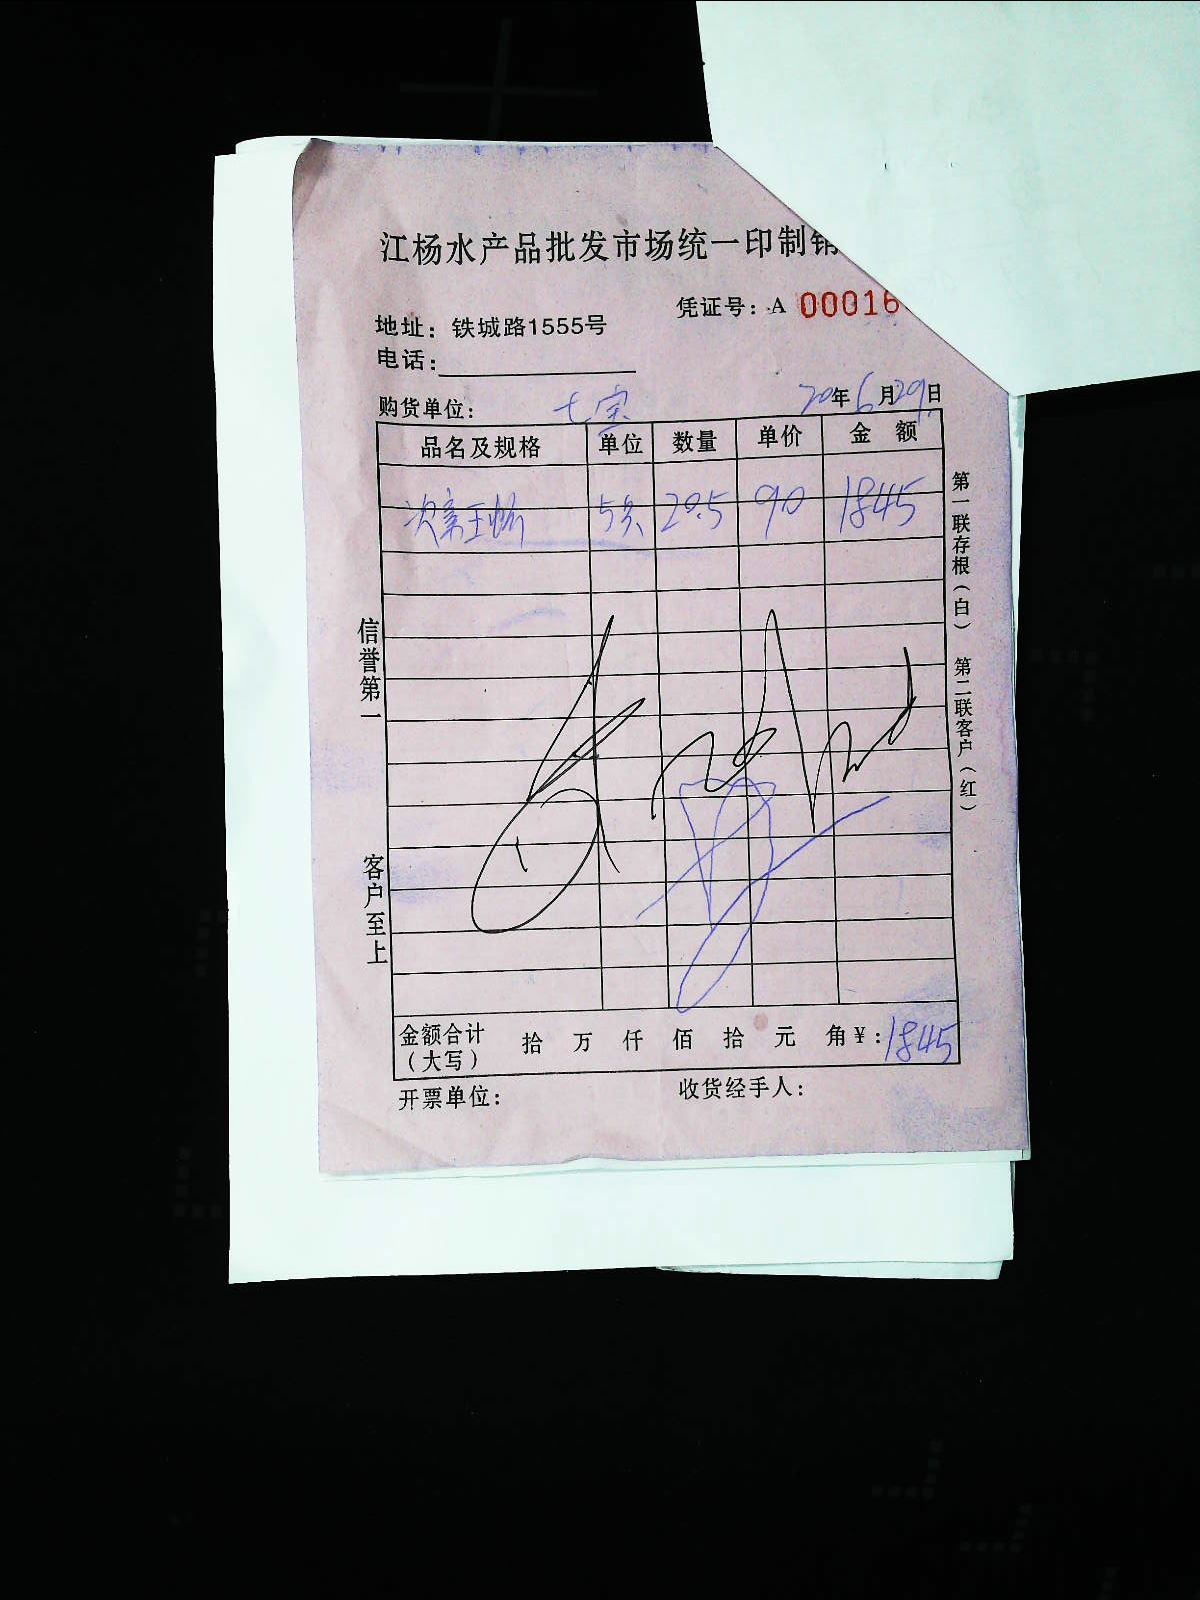 江杨水产品批发市场统一印制销
凭证号：A 00016
地址：铁城路1555号
电话：
购货单位： 七宝 20年6月29日
品名及规格 单位 数量 单价 金额
5只 20.5 90 1845
信誉第一
客户至上
第一联存根（白） 第二联客户（红）
金额合计（大写） 拾 万 仟 佰 拾 元 角 ¥：1845
开票单位： 收货经手人：